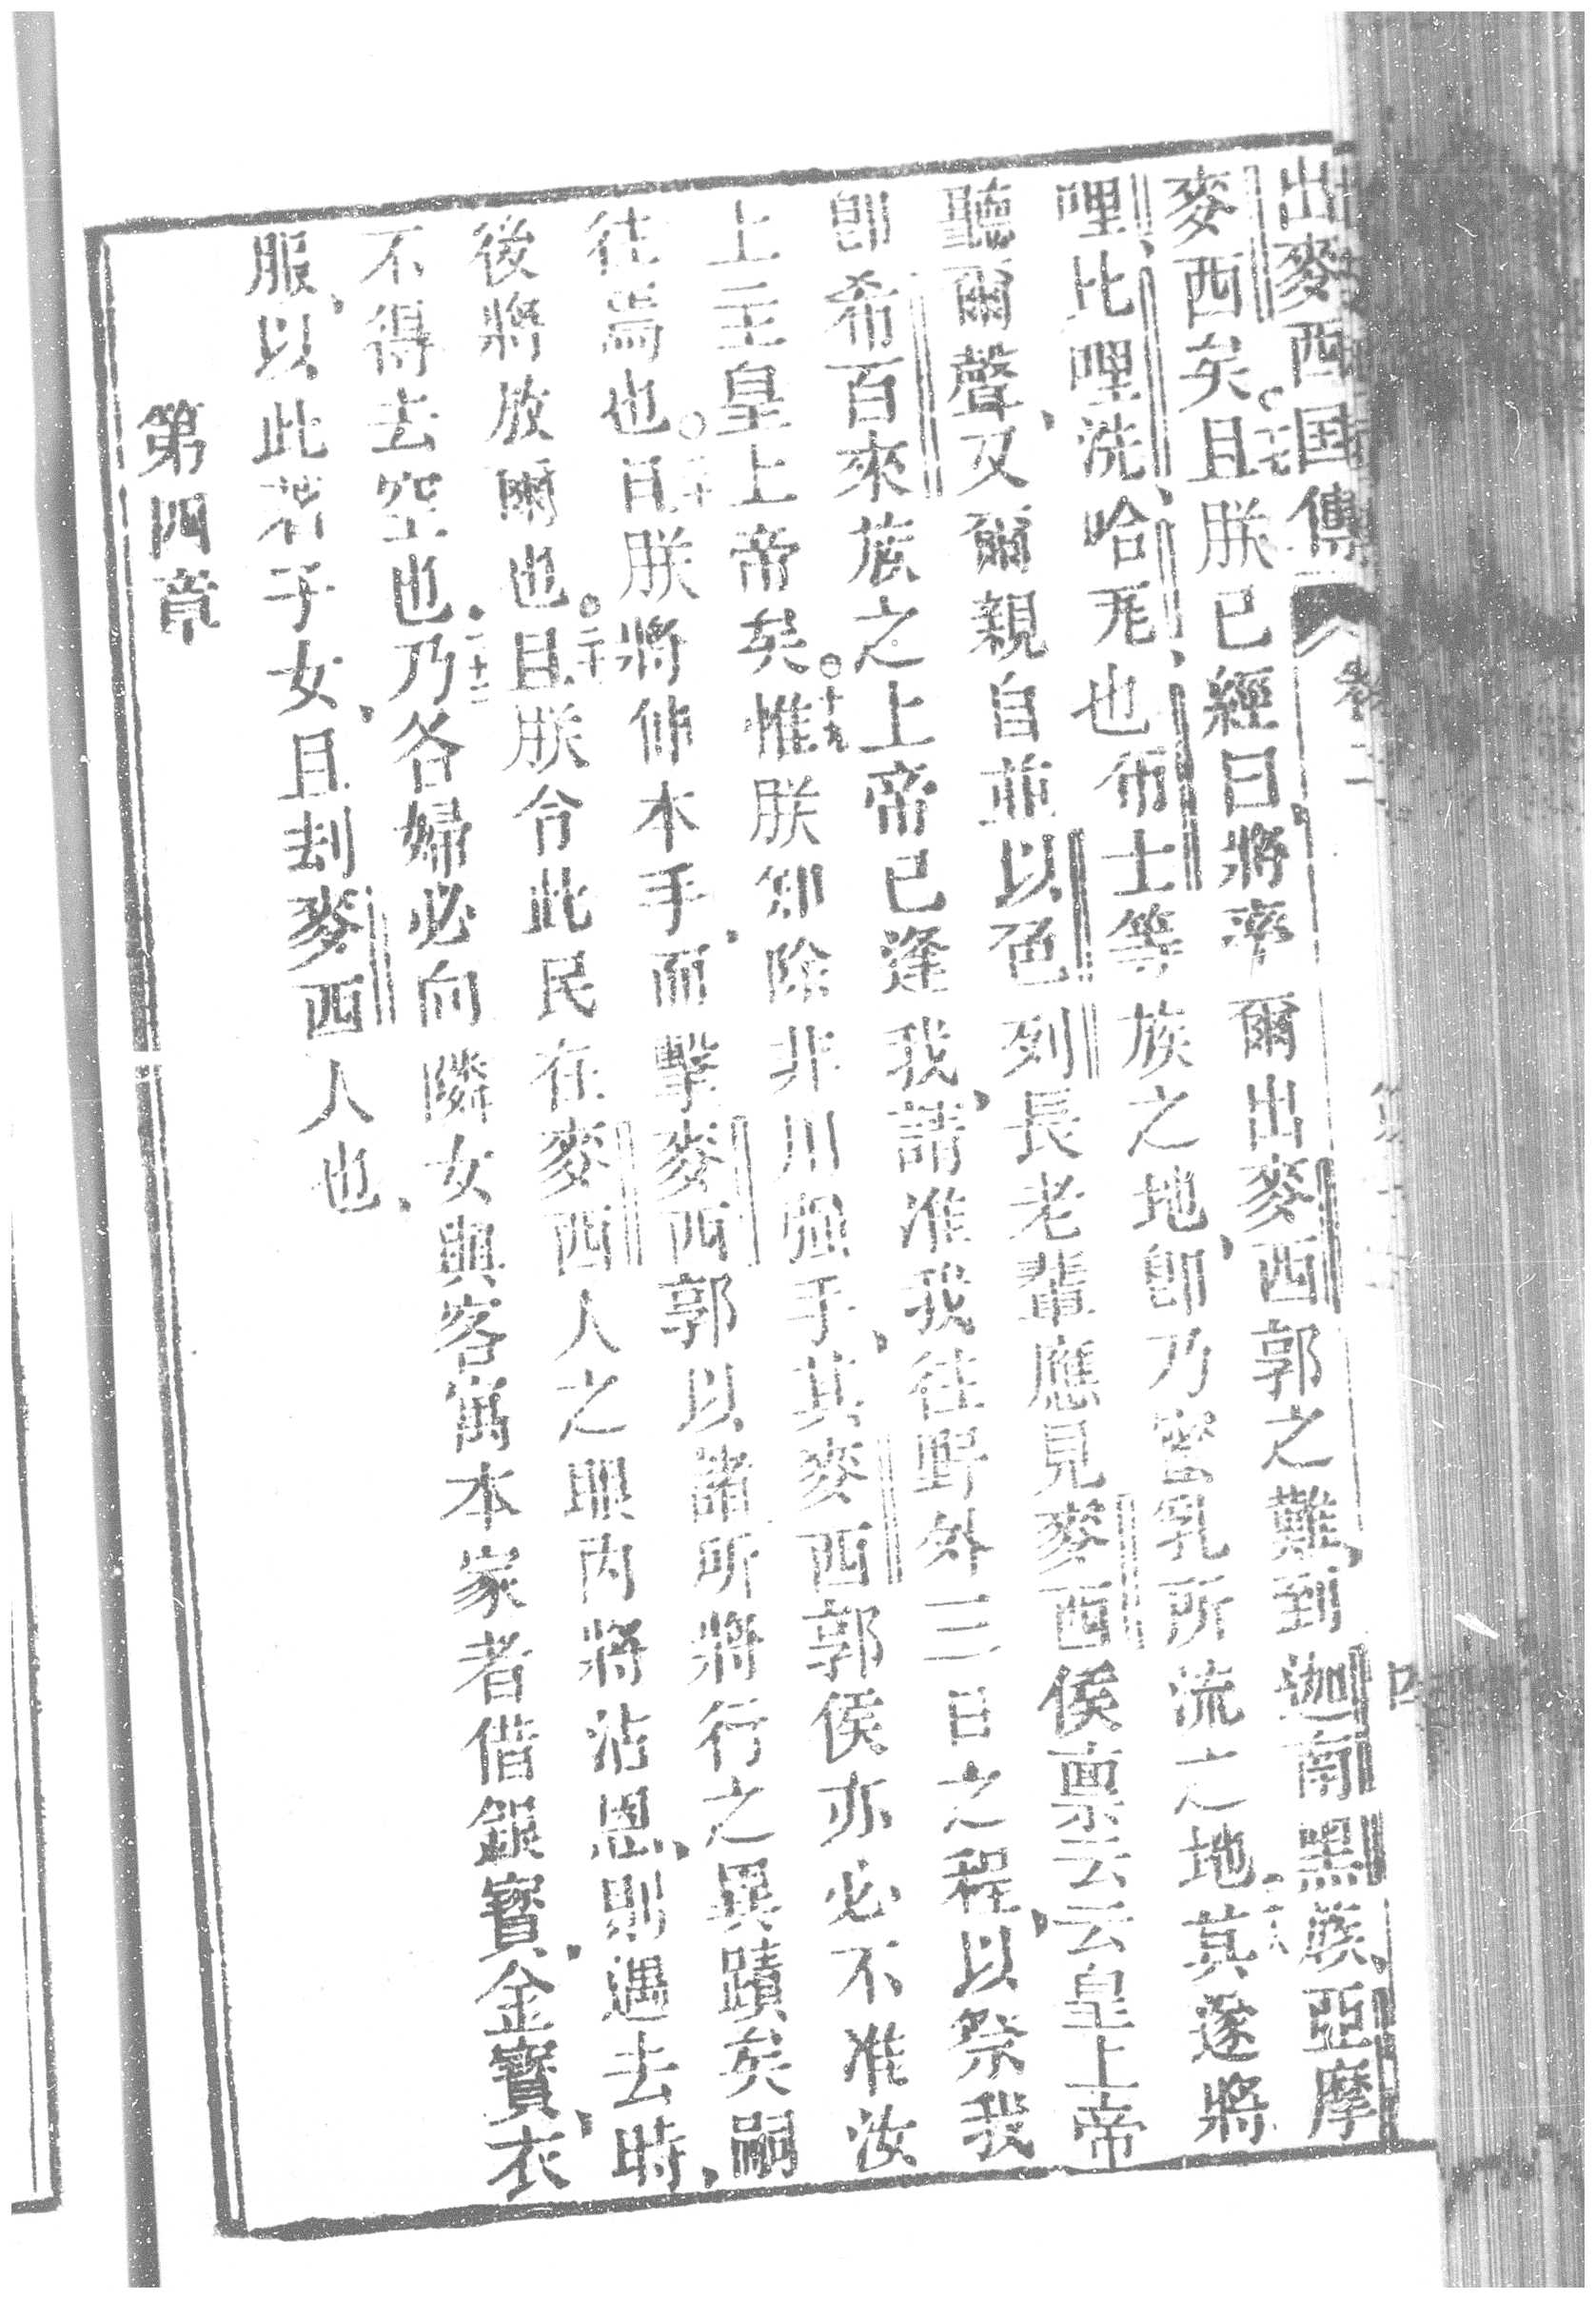 出麥西国傳 卷二
麥西矣。十七且朕已經曰、將率爾出麥西郭之難、到迦南黑族、亞摩
哩、比哩洗、哈㡳也、布士等族之地、即乃蜜乳所流之地、十八其遂將
聽爾聲、又爾親自並以色列長老輩應見麥西侯稟云云皇上帝
即希百來族之上帝已逢我、請准我往野外三日之程、以祭我
上主皇上帝矣。十九惟朕知除非用强手、其麥西郭侯亦必不准汝
往焉也。二十且朕將伸本手、而擊麥西郭以諸所將行之異蹟矣嗣
後將放爾也。二十一且朕令此民在麥西人之眼內將沾恩、則過去時、
不得去空也、二十二乃各婦必向隣女與客寓本家者借銀寶、金寶、衣
服、以此着子女、且刦麥西人也、
第四章